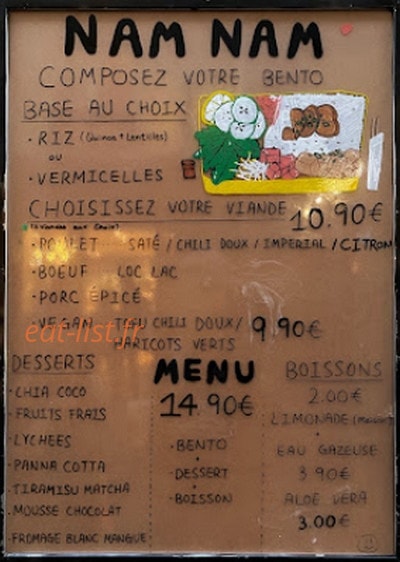 NAM NAM
COMPOSEZ VOTRE BENTO
BASE AU CHOIX
· RIZ (Quinoa + Lentilles)
ou
· VERMICELLES
CHOISISSEZ VOTRE VIANDE 10.90€
· POULET SATÉ / CHILI DOUX / IMPERIAL / CITRON
· BOEUF LOC LAC
· PORC ÉPICÉ
· VEGAN TOFU CHILI DOUX / 9.90€
HARICOTS VERTS
eat-list.fr
DESSERTS
· CHIA COCO
· FRUITS FRAIS
· LYCHEES
· PANNA COTTA
· TIRAMISU MATCHA
· MOUSSE CHOCOLAT
· FROMAGE BLANC MANGUE
MENU
14.90€
· BENTO
+
· DESSERT
+
· BOISSON
BOISSONS
2.00€
LIMONADE
+
EAU GAZEUSE
3.90€
ALOE VERA
3.00€